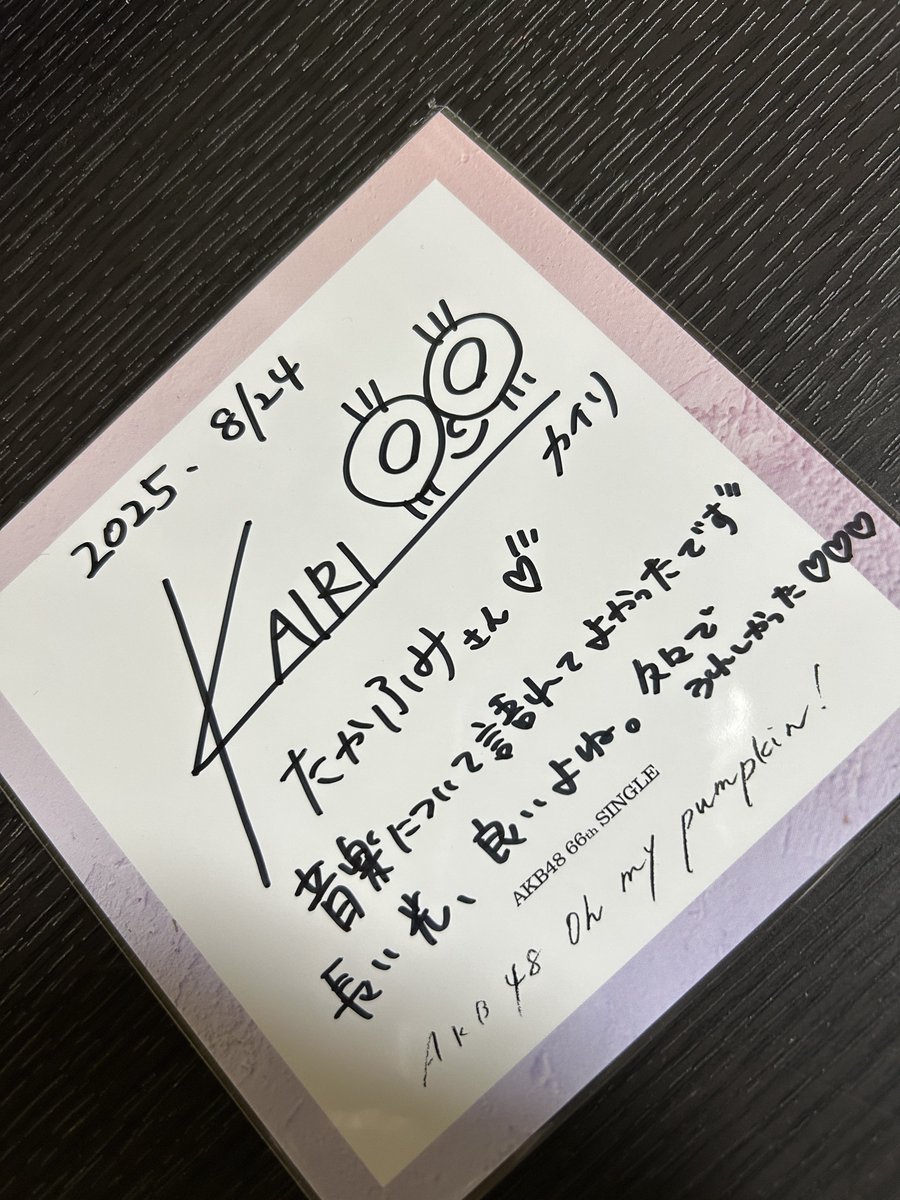 2025. 8/24
KAIRI
カイリ
たかふみさん♡
音楽について語れてよかったです
長い光、良いよね。久々で
うれしかった♡♡♡
AKB48 66th SINGLE
AKB48 Oh my pumpkin!